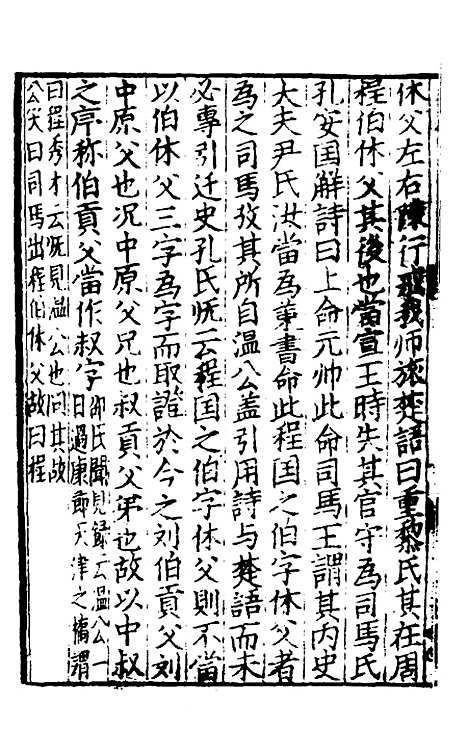 休父左右陳行戒我師旅楚語曰重黎氏其在周
程伯休父其後也當宣王時失其官守為司馬氏
孔安国解詩曰上命元帅此命司馬王謂其内史
大夫尹氏汝當為䇿書命此程国之伯字休父者
為之司馬攷其所自温公盖引用詩与楚語而未
必專引迁史孔氏既云程国之伯字休父則不當
以伯休父三字為字而取證於今之刘伯貢父刘
中原父也况中原父兄也叔貢父弟也故以中叔
之序称伯貢父當作叔字邵氏聞見録云温公一
日過康節天津之橋謂
曰程秀才云既見温公也问其故
公笑曰司馬出程伯休父故曰程